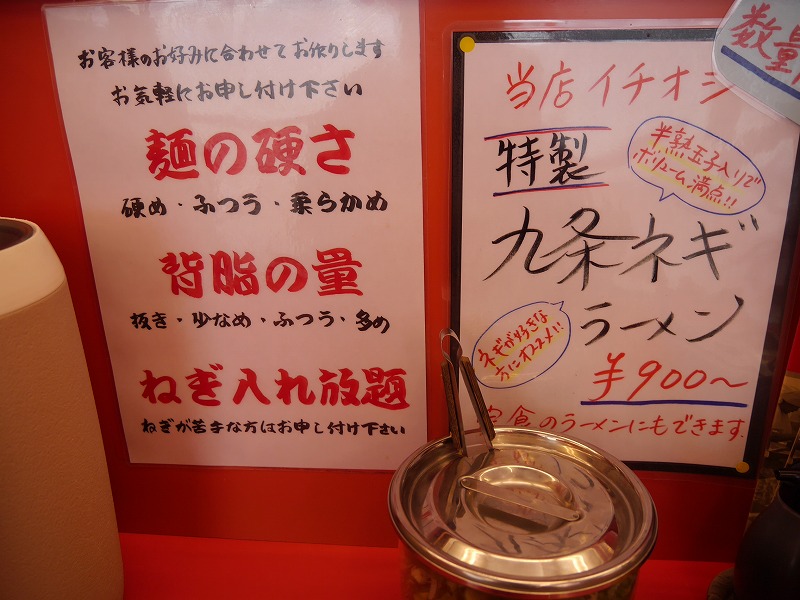 お客様のお好みに合わせてお作りします
お気軽にお申し付け下さい
麺の硬さ
硬め・ふつう・柔らかめ
背脂の量
抜き・少なめ・ふつう・多め
ねぎ入れ放題
ねぎが苦手な方はお申し付け下さい
当店イチオシ
特製
半熟玉子入りで
ボリューム満点!!
九条ネギ
ラーメン
ネギが好きな
方にオススメ!!
¥900〜
定食のラーメンにもできます.
数量